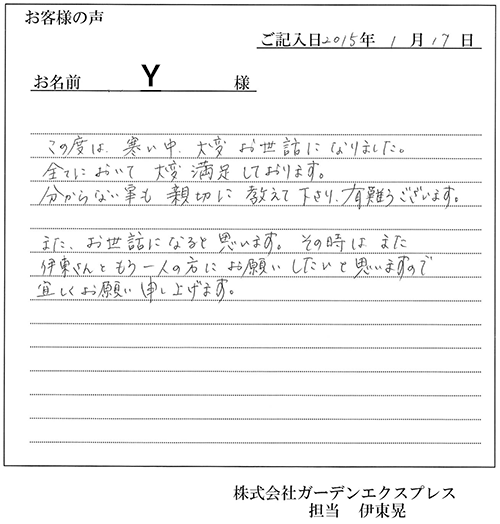 お客様の声
ご記入日2015年 1月 17日
お名前 Y 様
この度は、寒い中、大変 お世話に なりました。
全てにおいて 大変 満足しております。
分からない事も 親切に 教えて下さり、有難うございます。
また、お世話になると思います。その時は また
伊東さんと もう一人の方に お願いしたいと思いますので
宜しくお願い申し上げます。
株式会社ガーデンエクスプレス
担当 伊東晃